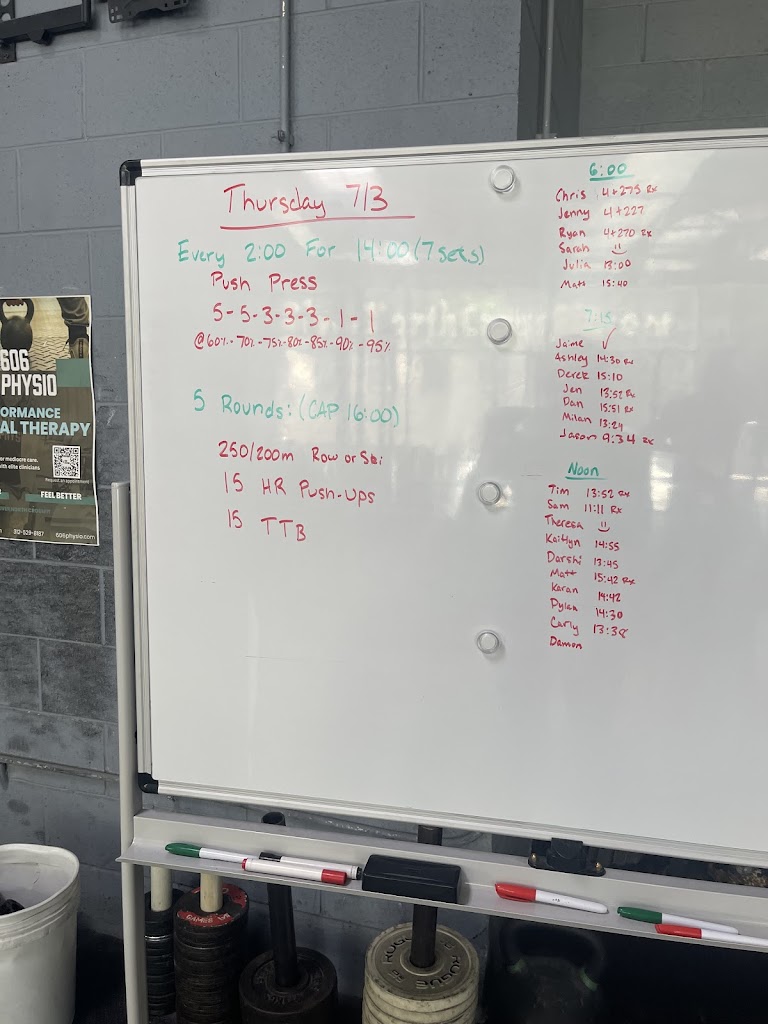 Thursday 7/3
Every 2:00 For 14:00 (7 sets)
Push Press
5-5-3-3-3-1-1
@60%-70%-75%-80%-85%-90%-95%
5 Rounds: (CAP 16:00)
250/200m Row or Ski
15 HR Push-Ups
15 TTB
6:00
Chris 4+275 Rx
Jenny 4+227
Ryan 4+270 Rx
Sarah
Julia 13:00
Matt 15:40
7:15
Jaime ✓
Ashley 14:30 Rx
Derek 15:10
Jen 13:52 Rx
Dan 15:51 Rx
Milan 13:24
Jason 9:34 Rx
Noon
Tim 13:52 Rx
Sam 11:11 Rx
Theresa
Kaitlyn 14:55
Darshi 13:45
Matt 15:42 Rx
Karan 14:42
Dylan 14:30
Carly 13:38
Damon
606
PHYSIO
ORMANCE
AL THERAPY
or mediocre care.
with elite clinicians
Request an appointment
FEEL BETTER
312-529-8187 606physio.com
ROGUE